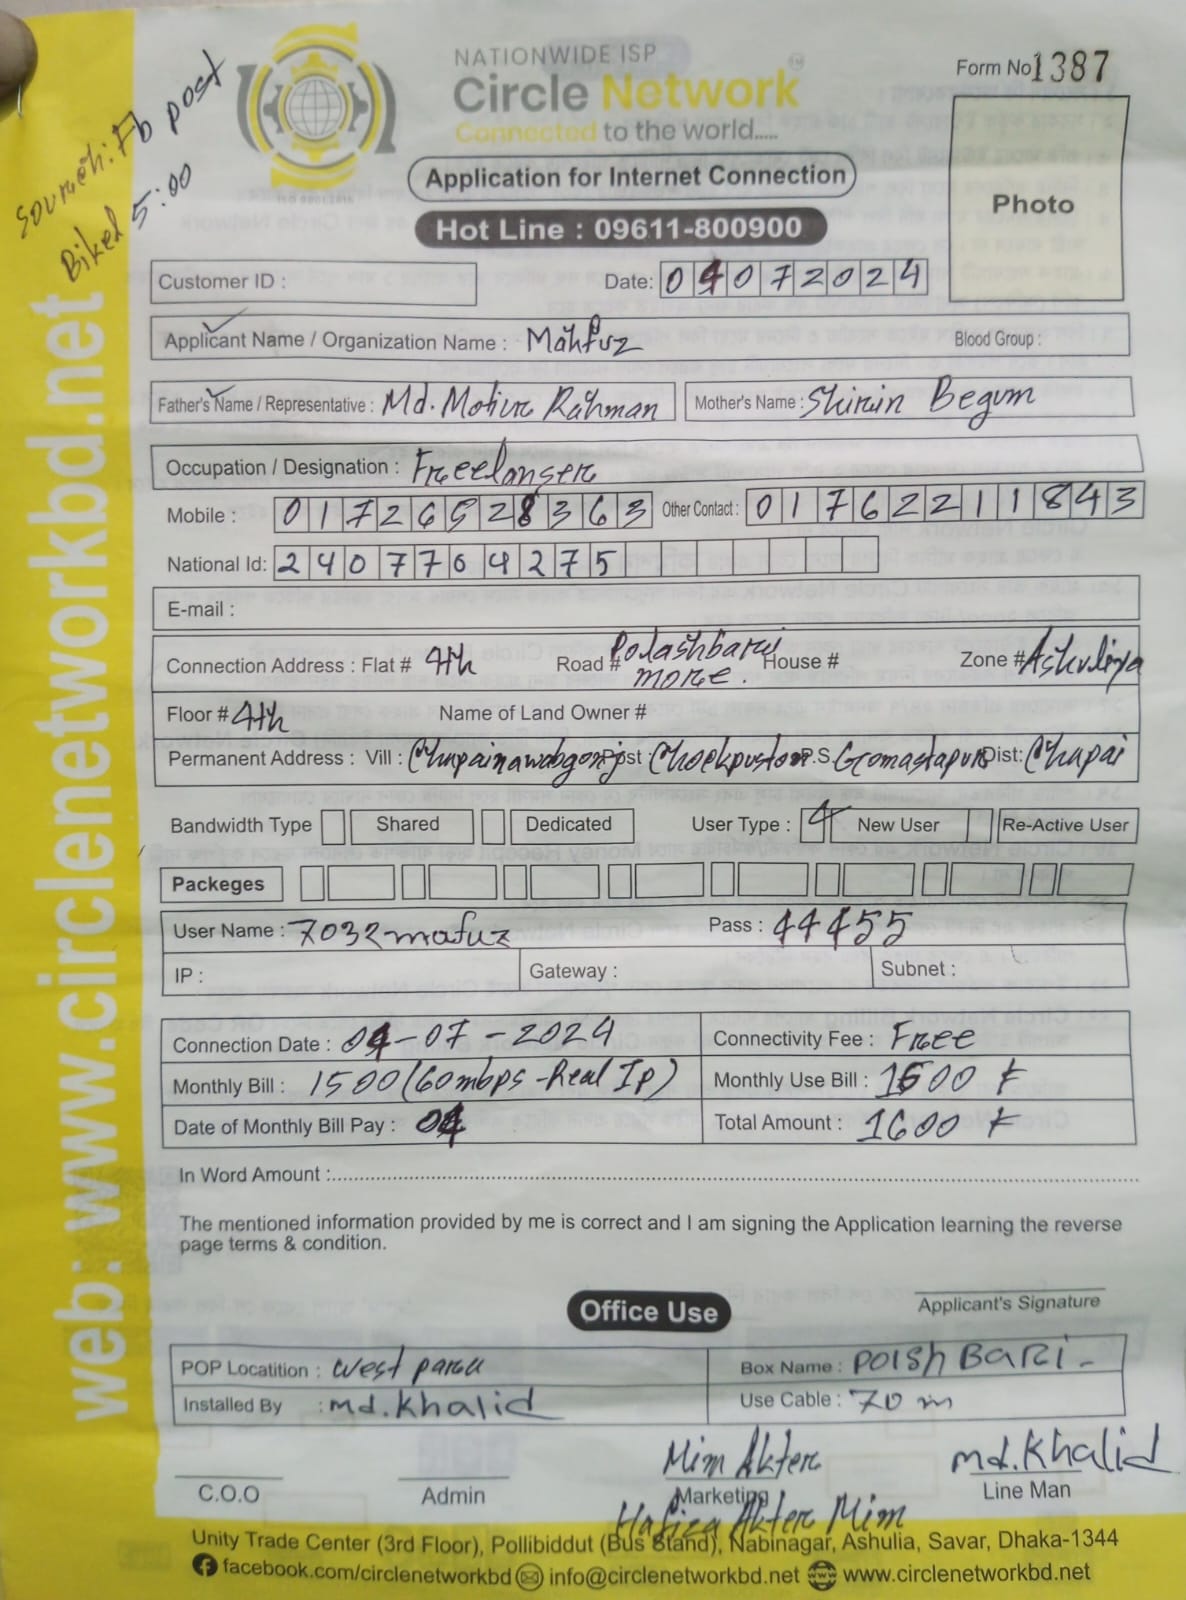 Sourch: Fb post
Biked 5:00
web: www.circlenetworkbd.net
NATIONWIDE ISP
Circle Network
Connected to the world.....
Form No 1387
Photo
Application for Internet Connection
Hot Line : 09611-800900
Customer ID :
Date: 04072024
Applicant Name / Organization Name : Mahfuz Blood Group :
Father's Name / Representative : Md. Motiur Rahman Mother's Name : Shirin Begum
Occupation / Designation : Freelanser
Mobile : 01726528363 Other Contact : 01762211843
National Id: 2407764275
E-mail :
Connection Address : Flat # 4th Road # Polashbari more. House # Zone # Ashuliya
Floor # 4th Name of Land Owner #
Permanent Address : Vill : Chapainawabgonj Post : P.S. Gomastapur Dist: Chapai
Bandwidth Type Shared Dedicated User Type : New User Re-Active User
Packeges
User Name : 7032mafuz Pass : 44455
IP : Gateway : Subnet :
Connection Date : 04-07-2024 Connectivity Fee : Free
Monthly Bill : 1500 (60mbps -Real Ip) Monthly Use Bill : 1600 ৳
Date of Monthly Bill Pay : 04 Total Amount : 1600 ৳
In Word Amount :
The mentioned information provided by me is correct and I am signing the Application learning the reverse
page terms & condition.
Applicant's Signature
Office Use
POP Locatition : West para Box Name : POISH BARI -
Installed By : md.Khalid Use Cable : 70 m
Mim Akter md.Khalid
C.O.O Admin Marketing Line Man
Hafiza Akter Mim
Unity Trade Center (3rd Floor), Pollibiddut (Bus Stand), Nabinagar, Ashulia, Savar, Dhaka-1344
facebook.com/circlenetworkbd info@circlenetworkbd.net www.circlenetworkbd.net